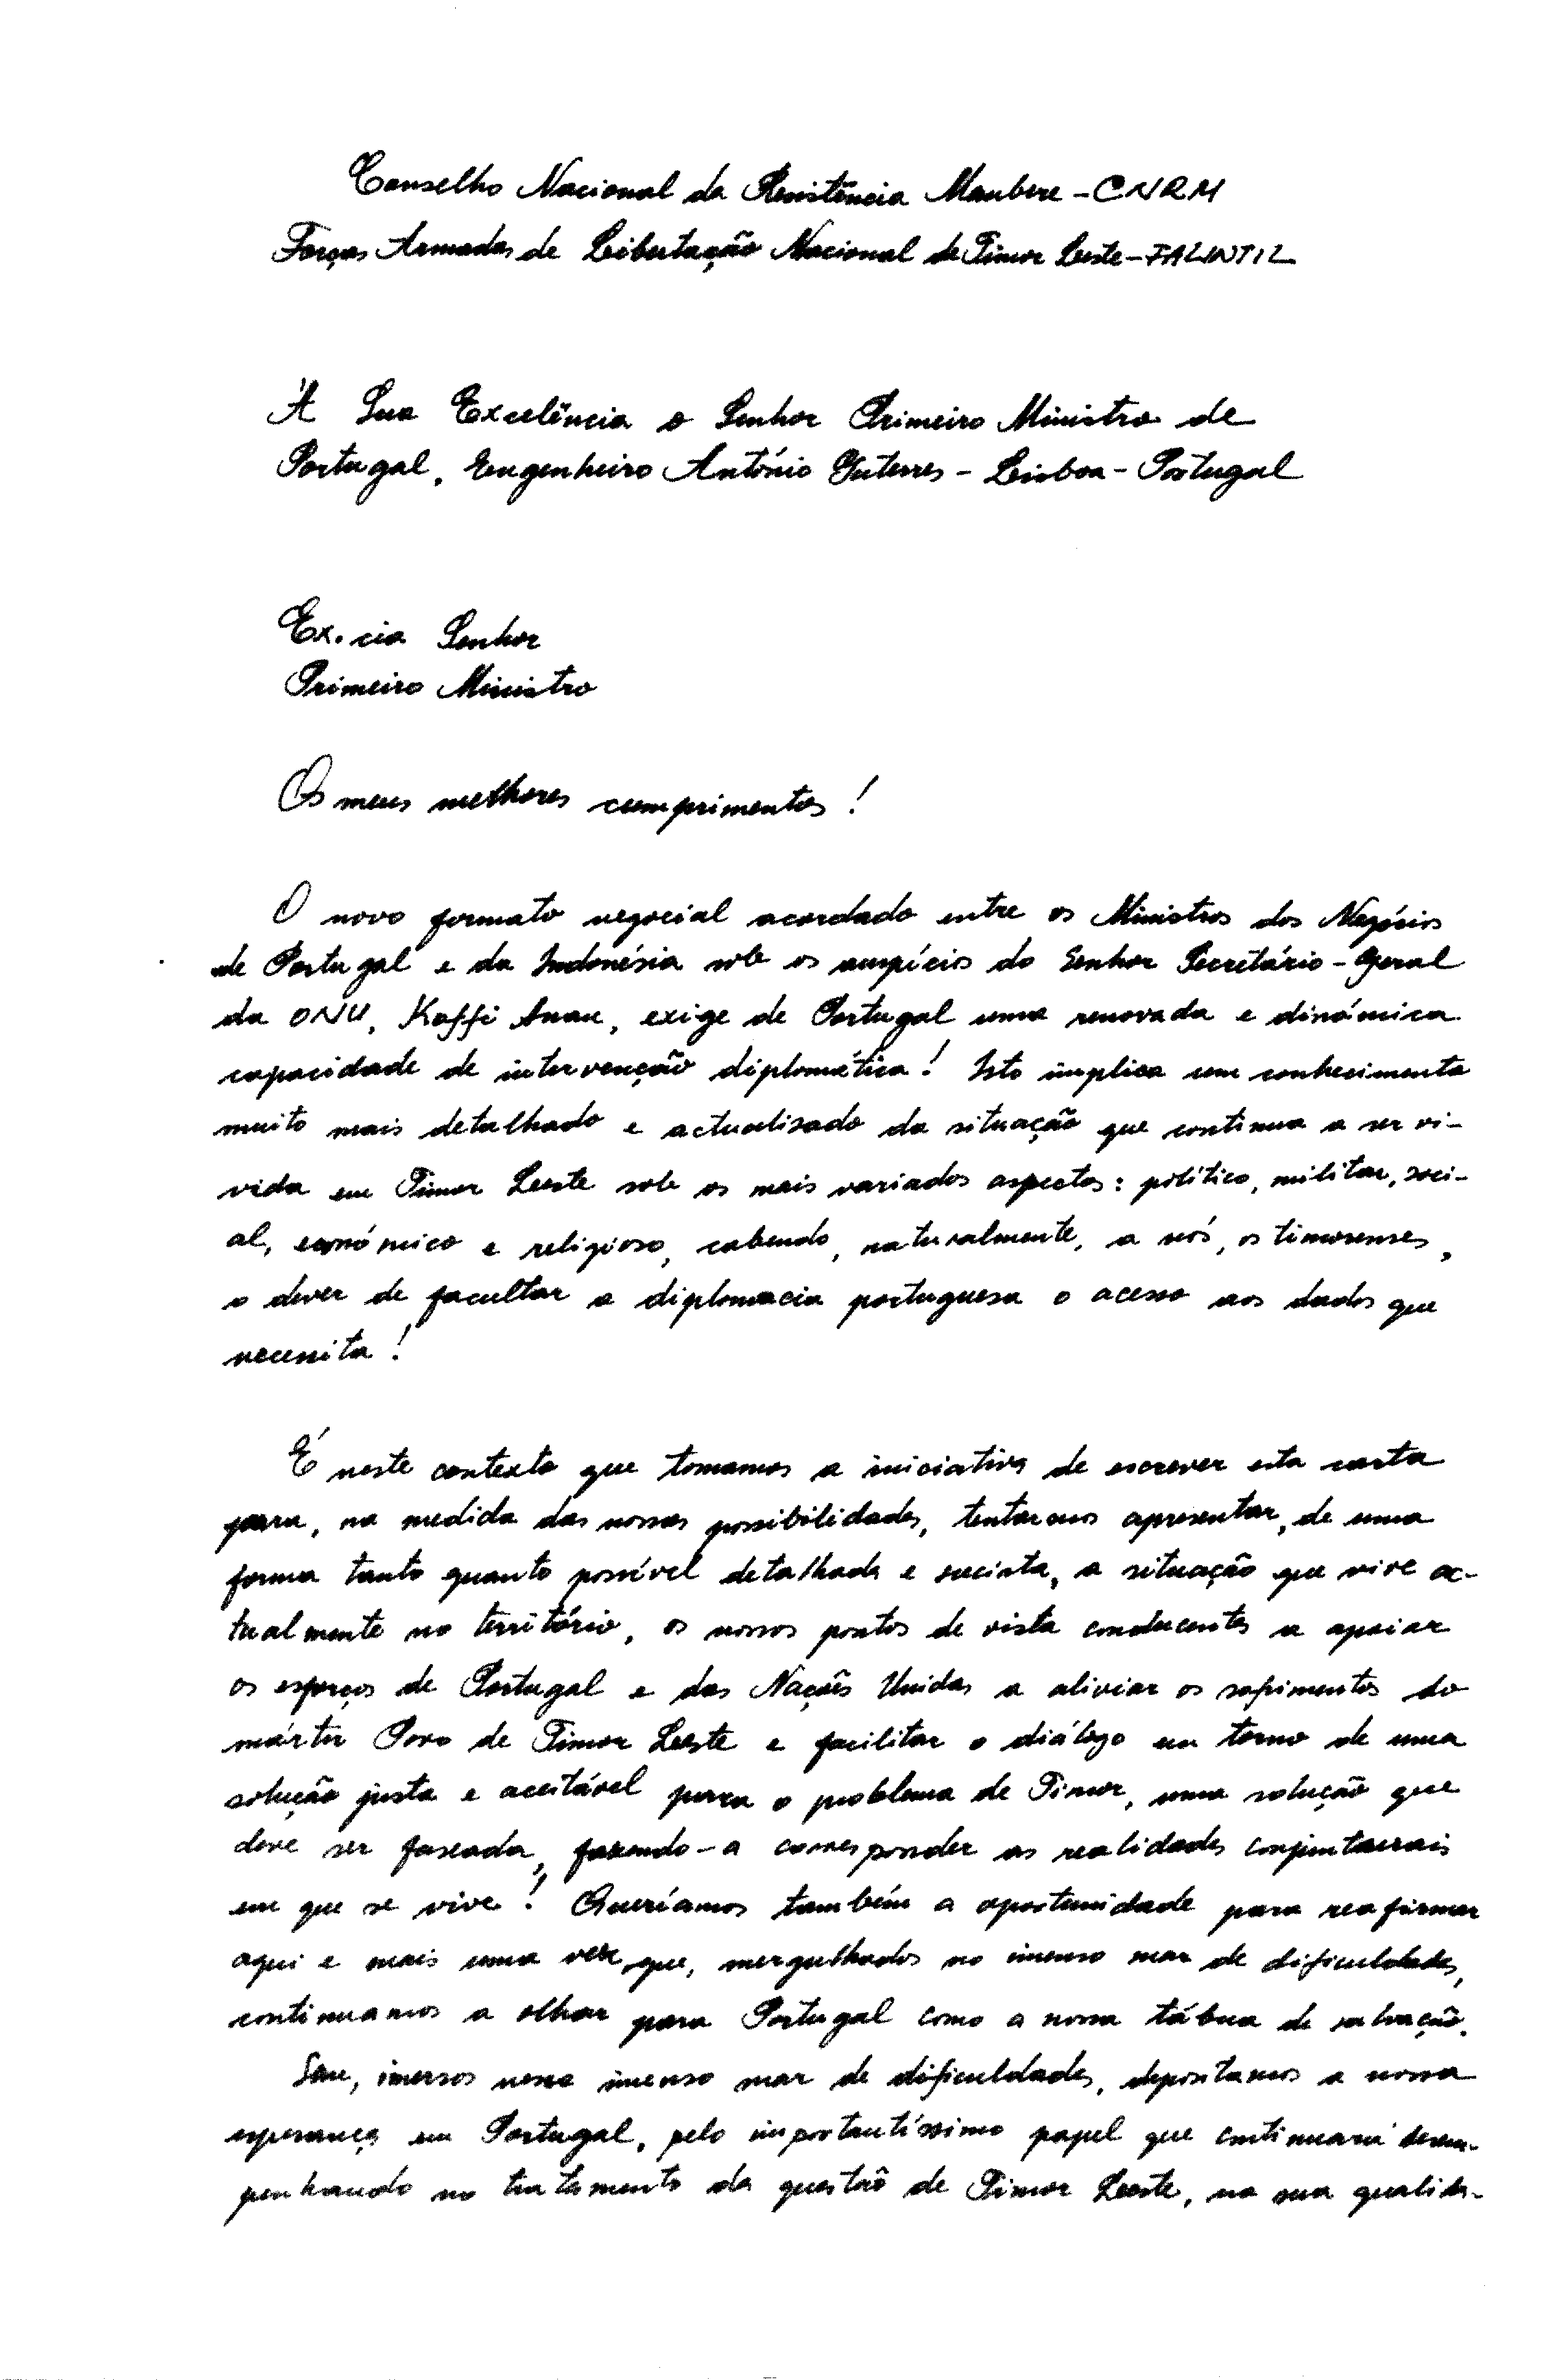 Conselho Nacional da Resistência Maubere - CNRM
Forças Armadas de Libertação Nacional de Timor Leste - FALINTIL
À Sua Excelência o Senhor Primeiro Ministro de
Portugal, Engenheiro António Guterres - Lisboa - Portugal
Ex.cia Senhor
Primeiro Ministro
Os meus melhores cumprimentos!
O novo formato negocial acordado entre os Ministros dos Negócios
de Portugal e da Indonésia sob os auspícios do Senhor Secretário-Geral
da ONU, Koffi Anan, exige de Portugal uma renovada e dinâmica
capacidade de intervenção diplomática! Isto implica um conhecimento
muito mais detalhado e actualisado da situação que continua a ser vi-
vida em Timor Leste sob os mais variados aspectos: político, militar, soci-
al, económico e religioso, cabendo, naturalmente, a nós, os timorenses,
o dever de facultar a diplomacia portuguesa o acesso aos dados que
necessita!
É neste contexto que tomamos a iniciativa de escrever esta carta
para, na medida das nossas possibilidades, tentarmos apresentar, de uma
forma tanto quanto possível detalhada e sucinta, a situação que vive ac-
tualmente no território, os nossos pontos de vista conducentes a apoiar
os esforços de Portugal e das Nações Unidas a aliviar os sofrimentos do
mártir Povo de Timor Leste e facilitar o diálogo em torno de uma
solução justa e aceitável para o problema de Timor, uma solução que
deve ser faseada, fazendo-a corresponder as realidades conjunturais
em que se vive! Queríamos também a oportunidade para reafirmar
aqui e mais uma vez, que, mergulhados no imenso mar de dificuldades,
continuamos a olhar para Portugal como a nossa tábua de salvação.
Sim, imersos nesse imenso mar de dificuldades, depositamos a nossa
esperança em Portugal, pelo importantíssimo papel que continuará desem-
penhando no tratamento da questão de Timor Leste, na sua qualida-